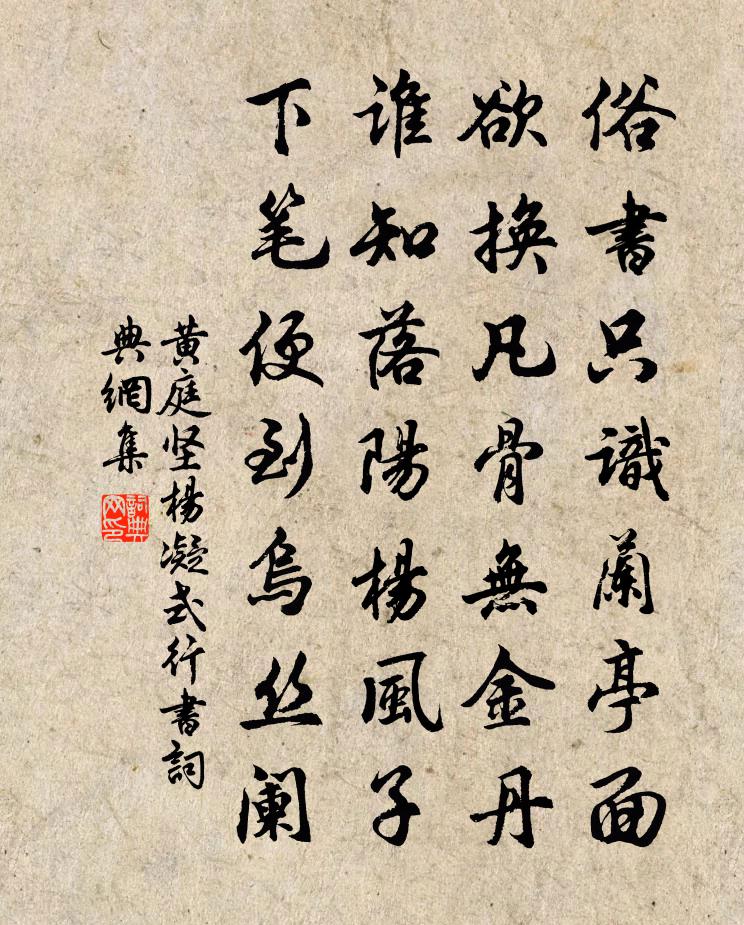 俗書只識蘭亭面
欲換凡骨無金丹
谁知落陽楊風子
下笔便到烏丝阑
黄庭坚楊凝式行書詞
典網集
詞典
网印